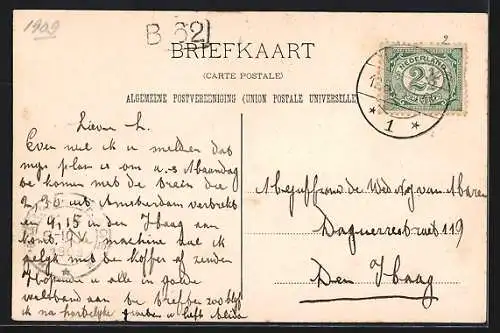 1909
B 62
BRIEFKAART
(CARTE POSTALE)
ALGEMEENE POSTVEREENIGING (UNION POSTALE UNIVERSELLE)
2
NEDERLAND
2½
1
Lieve L.
Even wil ik u melden dat
mijn plan is om a.s Maandag
te komen met de trein die
2,30 uit Amsterdam vertrekt
en 4,15 in den Haag aan
komt. De machine zal ik
gelijk met de koffer af zenden
Hopende u alle in goede
welstand aan te treffen zoo blijf
ik na hartelijke groeten u liefh
Mejuffrouw de Wed van Maren
Daguerrestraat 119
Den Haag